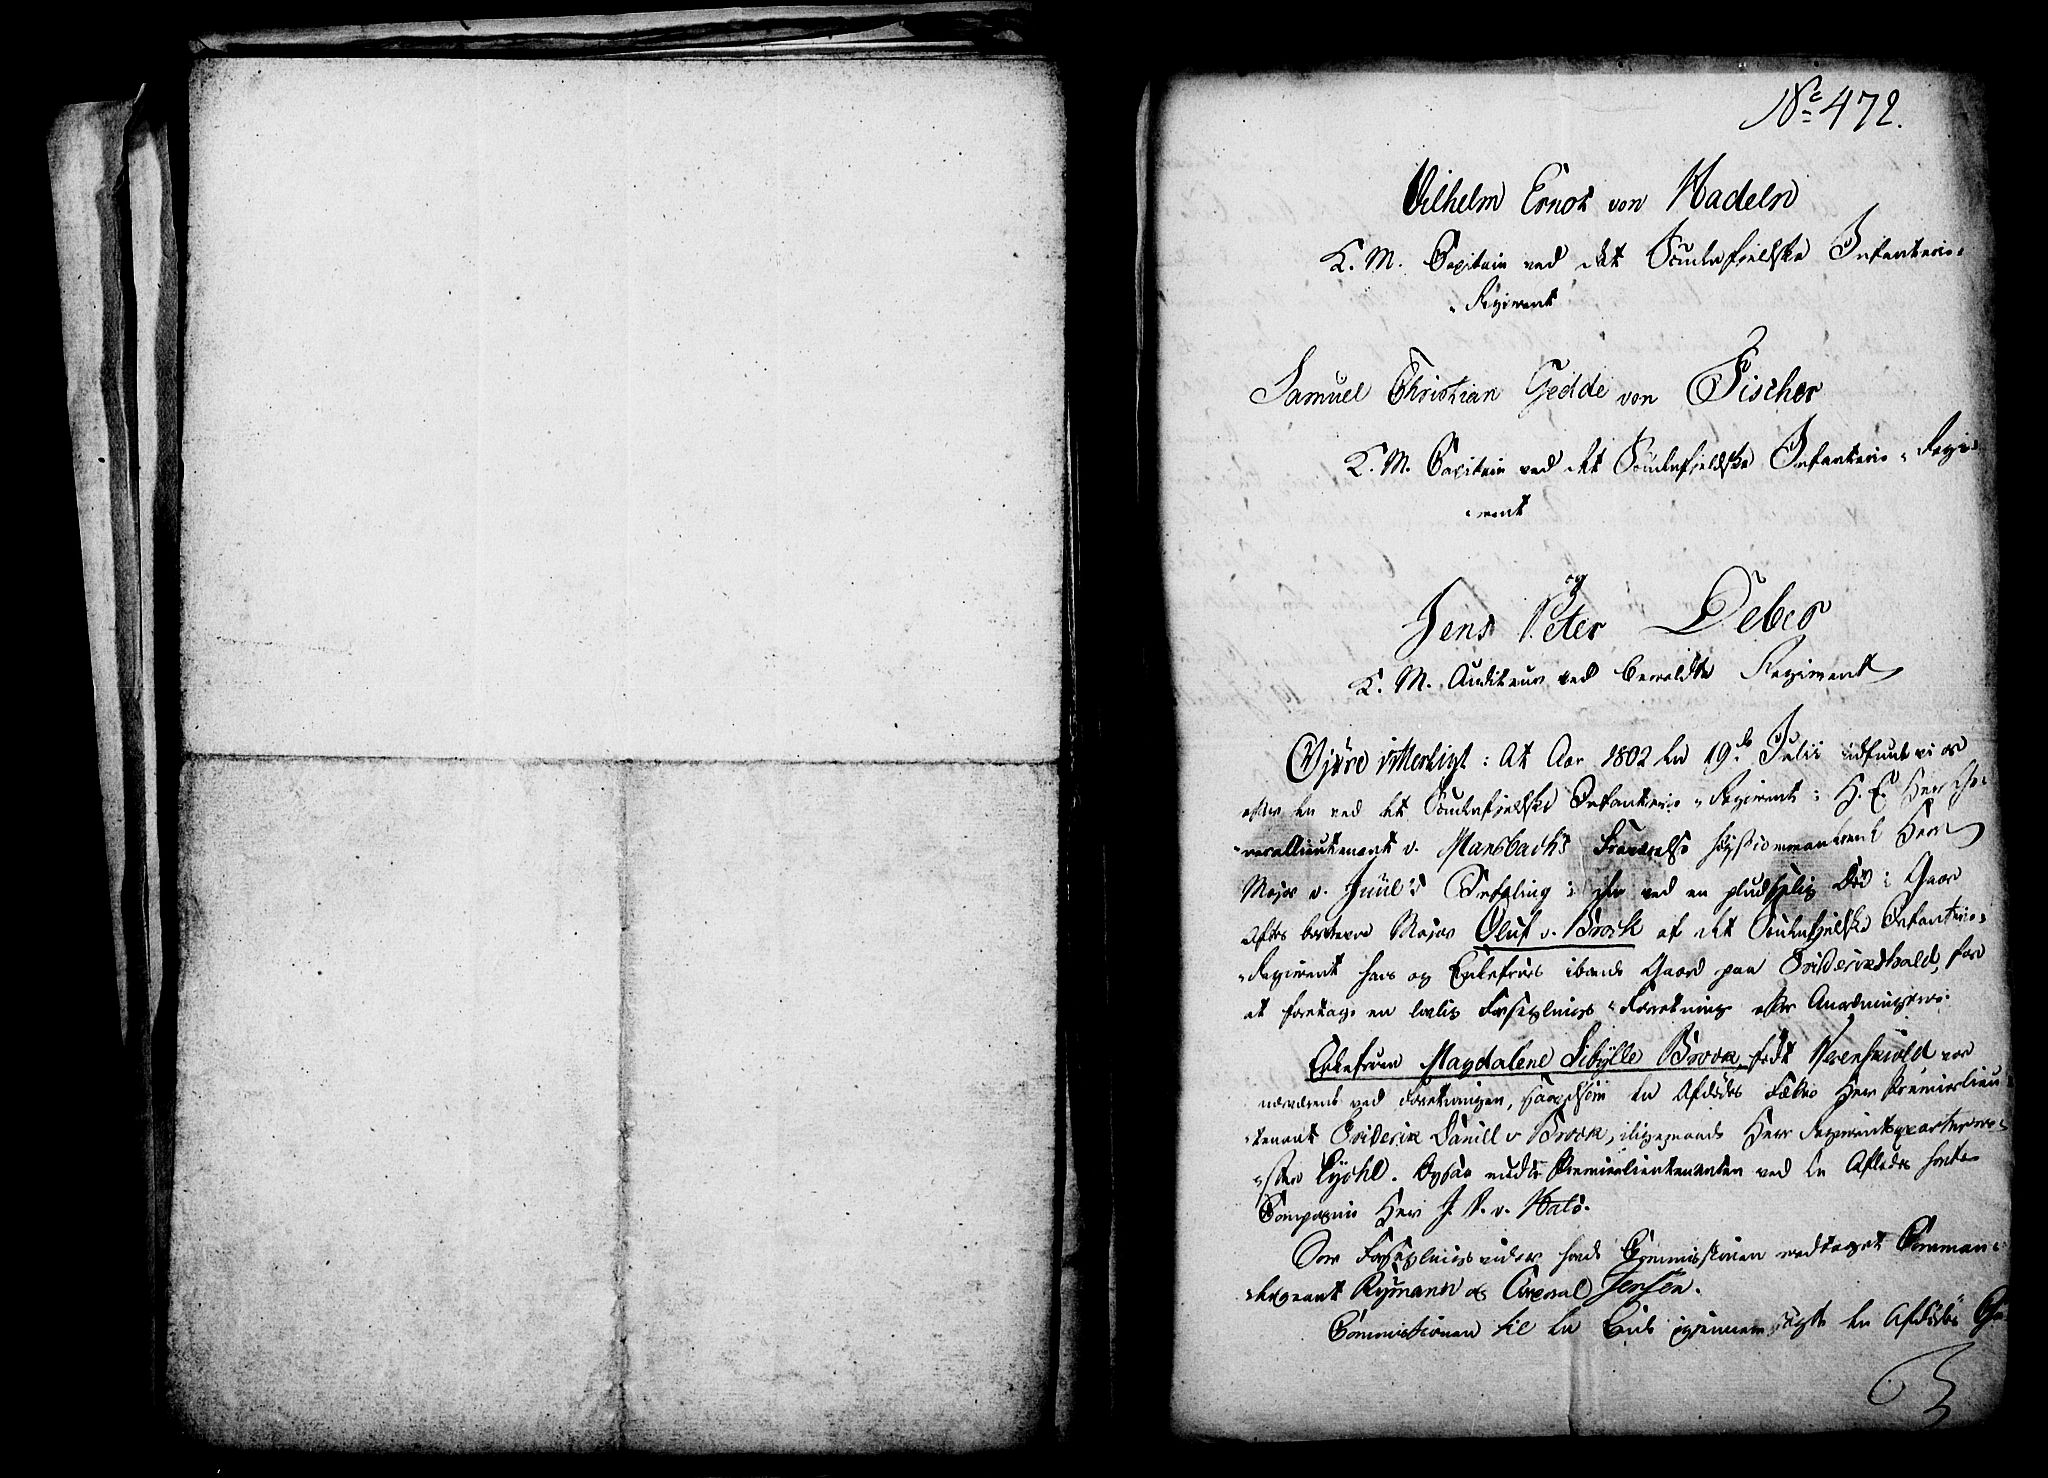 No 472.
Vilhelm Ernst von Hadeln
K. M. Capitain ved det Söndenfieldske Infanterie-
-Regiment
Samuel Christian Gedde von Fischer
K. M. Capitain ved det Söndenfjeldske Infanterie-Regi-
-ment
og
Jens Peter Debes
K. M. Auditeur ved bemeldte Regiment
Gjöre vitterligt: At Aar 1802 den 19de Julii indfunt vi os
efter den ved det Söndenfjeldske Infanterie-Regiment: H. E. Herr Ge-
-nerallieutenant v. Mansbachs Fraværelse höystcommanderende Herr
Major v. Juul's Befaling: i den ved en pludselig Död i Gaar
Aftes bortrevne Major Oluf v. Brock af det Söndenfjeldske Infanterie-
-Regiment hans og Enkefrues iboende Gaard paa Friderichshald, for
at foretage en lovlig Forseglings-Forretning efter Anordningerne.
Enkefruen Magdalene Sibylle Brock, födt Werenskiold var
nærværende ved Forretningen, saavelsom den Afdödes Fætter Herr Premierlieu-
-tenant Friderik Daniell v Brock, iligemaade Herr Regimentsqvarterme-
-ster Lyche. Ogsaa mödte Premierlieutenanten ved den Afdödes havte
Compagnie Herr J. P. v. Hals.
Som Forseglingsvidner havde Commissionen medtaget Comman-
-dersergeant Rymann og Corporal Jensen.
Commissionen til den Ende igjennemsögte den Afdödes